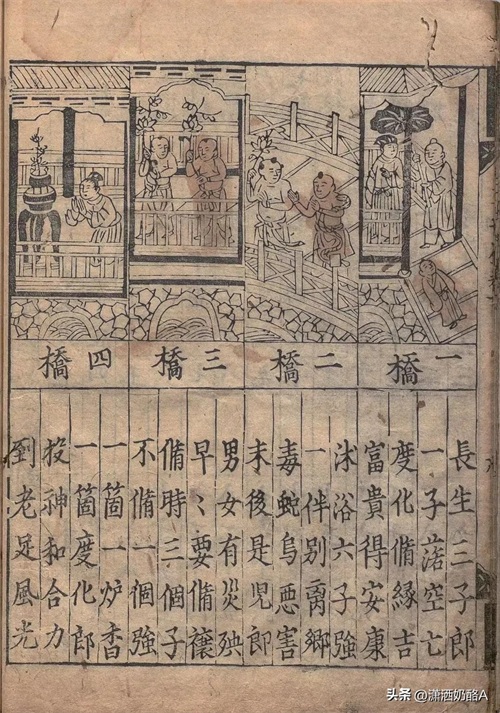 一橋
長生三子郎
一子落空亡
度化脩縁吉
富貴得安康
二橋
沐浴六子強
一伴别离鄉
毒蛇鳥悪害
末後是児郎
三橋
男女有災殃
早〻要脩禳
脩時三個子
不脩一個強
四橋
一箇一炉香
一箇度化郎
投神和合力
到老足風光
头条 @潇洒奶酪A